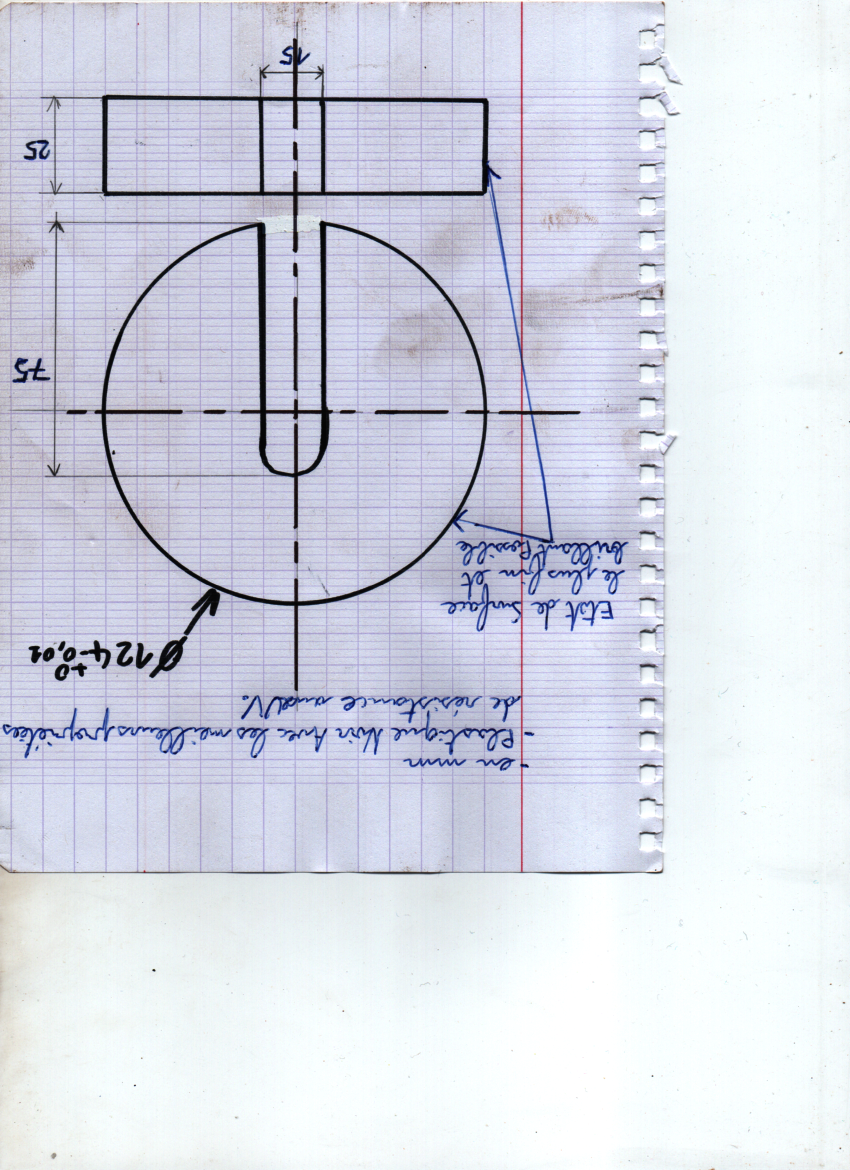 - en mm
- Plastique Noir Avec les meilleurs propriétées
de résistance aux UV.
Ø124 +0
-0,02
Etat de Surface
le plus fin et
brillant Possible
75
25
15